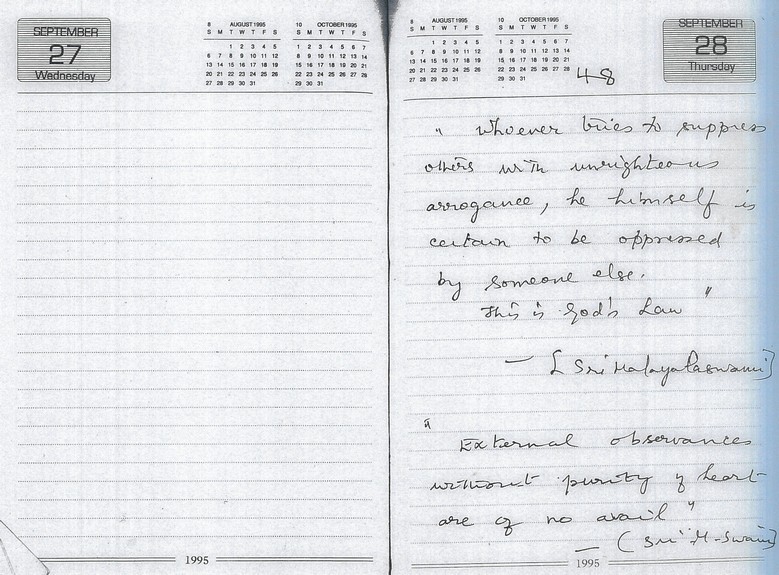 SEPTEMBER
27
Wednesday
8 AUGUST 1995
S M T W T F S
1 2 3 4 5
6 7 8 9 10 11 12
13 14 15 16 17 18 19
20 21 22 23 24 25 26
27 28 29 30 31
10 OCTOBER 1995
S M T W T F S
1 2 3 4 5 6 7
8 9 10 11 12 13 14
15 16 17 18 19 20 21
22 23 24 25 26 27 28
29 30 31
1995
8 AUGUST 1995
S M T W T F S
1 2 3 4 5
6 7 8 9 10 11 12
13 14 15 16 17 18 19
20 21 22 23 24 25 26
27 28 29 30 31
10 OCTOBER 1995
S M T W T F S
1 2 3 4 5 6 7
8 9 10 11 12 13 14
15 16 17 18 19 20 21
22 23 24 25 26 27 28
29 30 31
48
SEPTEMBER
28
Thursday
" Whoever tries to suppress
others with unrighteous
arrogance, he himself is
certain to be oppressed
by someone else.
This is God's Law "
— [ Sri Malayalaswami ]
" External observances
without purity of heart
are of no avail "
— ( Sri M-Swami ]
1995